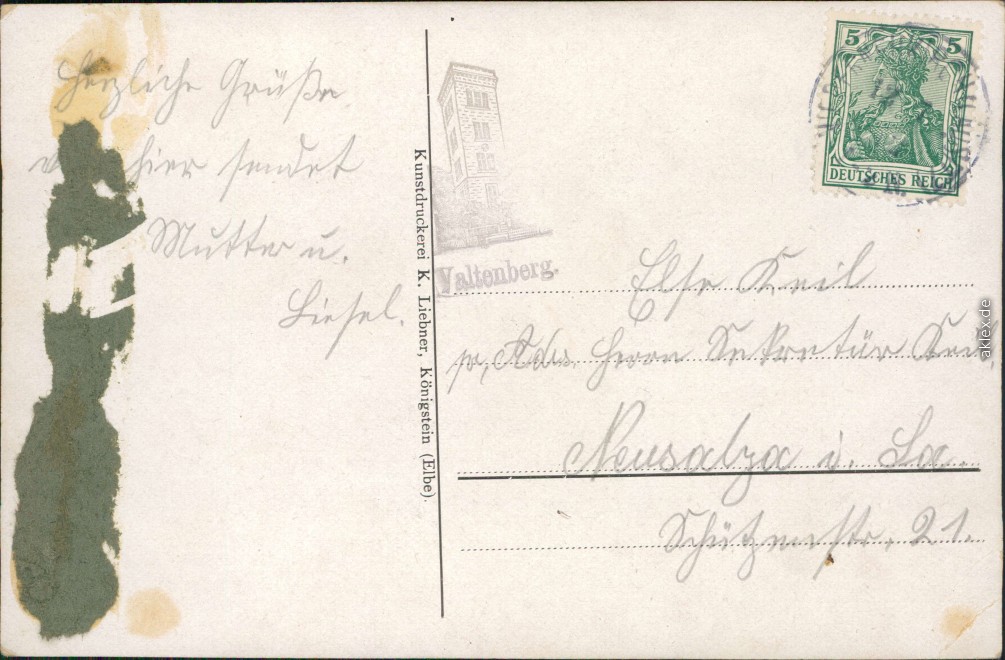 Herzliche Grüße
hier sendet
Mutter u.
Liesel.
Kunstdruckerei K. Liebner, Königstein (Elbe).
Valtenberg.
5 5
DEUTSCHES REICH
Else Keil
pr. Adr. Herrn Sekretär Keil
Neusalza i. Sa.
Schützenstr. 21.
aklex.de